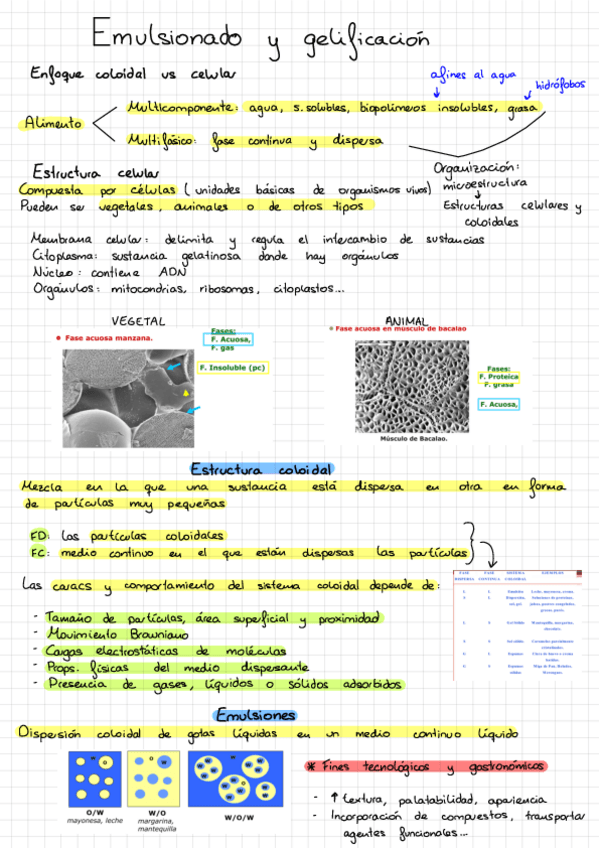 Emulsionado y gelificación
Enfoque coloidal vs celular
afines al agua
hidrófobos
Alimento
Multicomponente: agua, s.solubles, biopolímeros insolubles, grasa
Multifásico: fase continua y dispersa
Organización:
microestructura
Estructuras celulares y
coloidales
Estructura celular
Compuesta por células (unidades básicas de organismos vivos)
Pueden ser vegetales, animales o de otros tipos
Membrana celular: delimita y regula el intercambio de sustancias
Citoplasma: sustancia gelatinosa donde hay orgánulos
Núcleo: contiene ADN
Orgánulos: mitocondrias, ribosomas, citoplastos...
VEGETAL
Fase acuosa manzana.
Fases:
F. Acuosa,
F. gas
F. Insoluble (pc)
ANIMAL
Fase acuosa en músculo de bacalao
Fases:
F. Proteica
F. grasa
F. Acuosa,
Músculo de Bacalao.
Estructura coloidal
Mezcla en la que una sustancia está dispersa en otra en forma
de partículas muy pequeñas
FD: las partículas coloidales
FC: medio continuo en el que están dispersas las partículas
FASE DISPERSA FASE CONTINUA SISTEMA COLOIDAL EJEMPLOS
Las caracs y comportamiento del sistema coloidal depende de:
- Tamaño de partículas, área superficial y proximidad
- Movimiento Browniano
- Cargas electrostáticas de moléculas
- Props. físicas del medio dispersante
- Presencia de gases, líquidos o sólidos adsorbidos
Emulsiones
Dispersión coloidal de gotas líquidas en un medio continuo líquido
O/W
mayonesa, leche
W/O
margarina,
mantequilla
W/O/W
* Fines tecnológicos y gastronómicos
- ↑ textura, palatabilidad, apariencia
- Incorporación de compuestos, transportar
agentes funcionales...